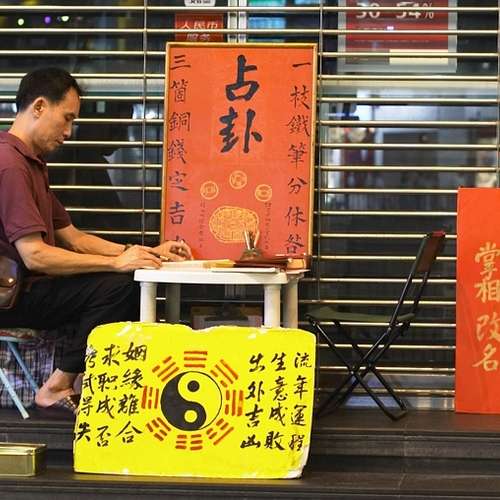 人民币
占卦
一枝鐵筆分休咎
三箇銅錢定吉
掌相改名
流年運程
生意成敗
出外吉凶
姻緣離合
求職成否
考試得失